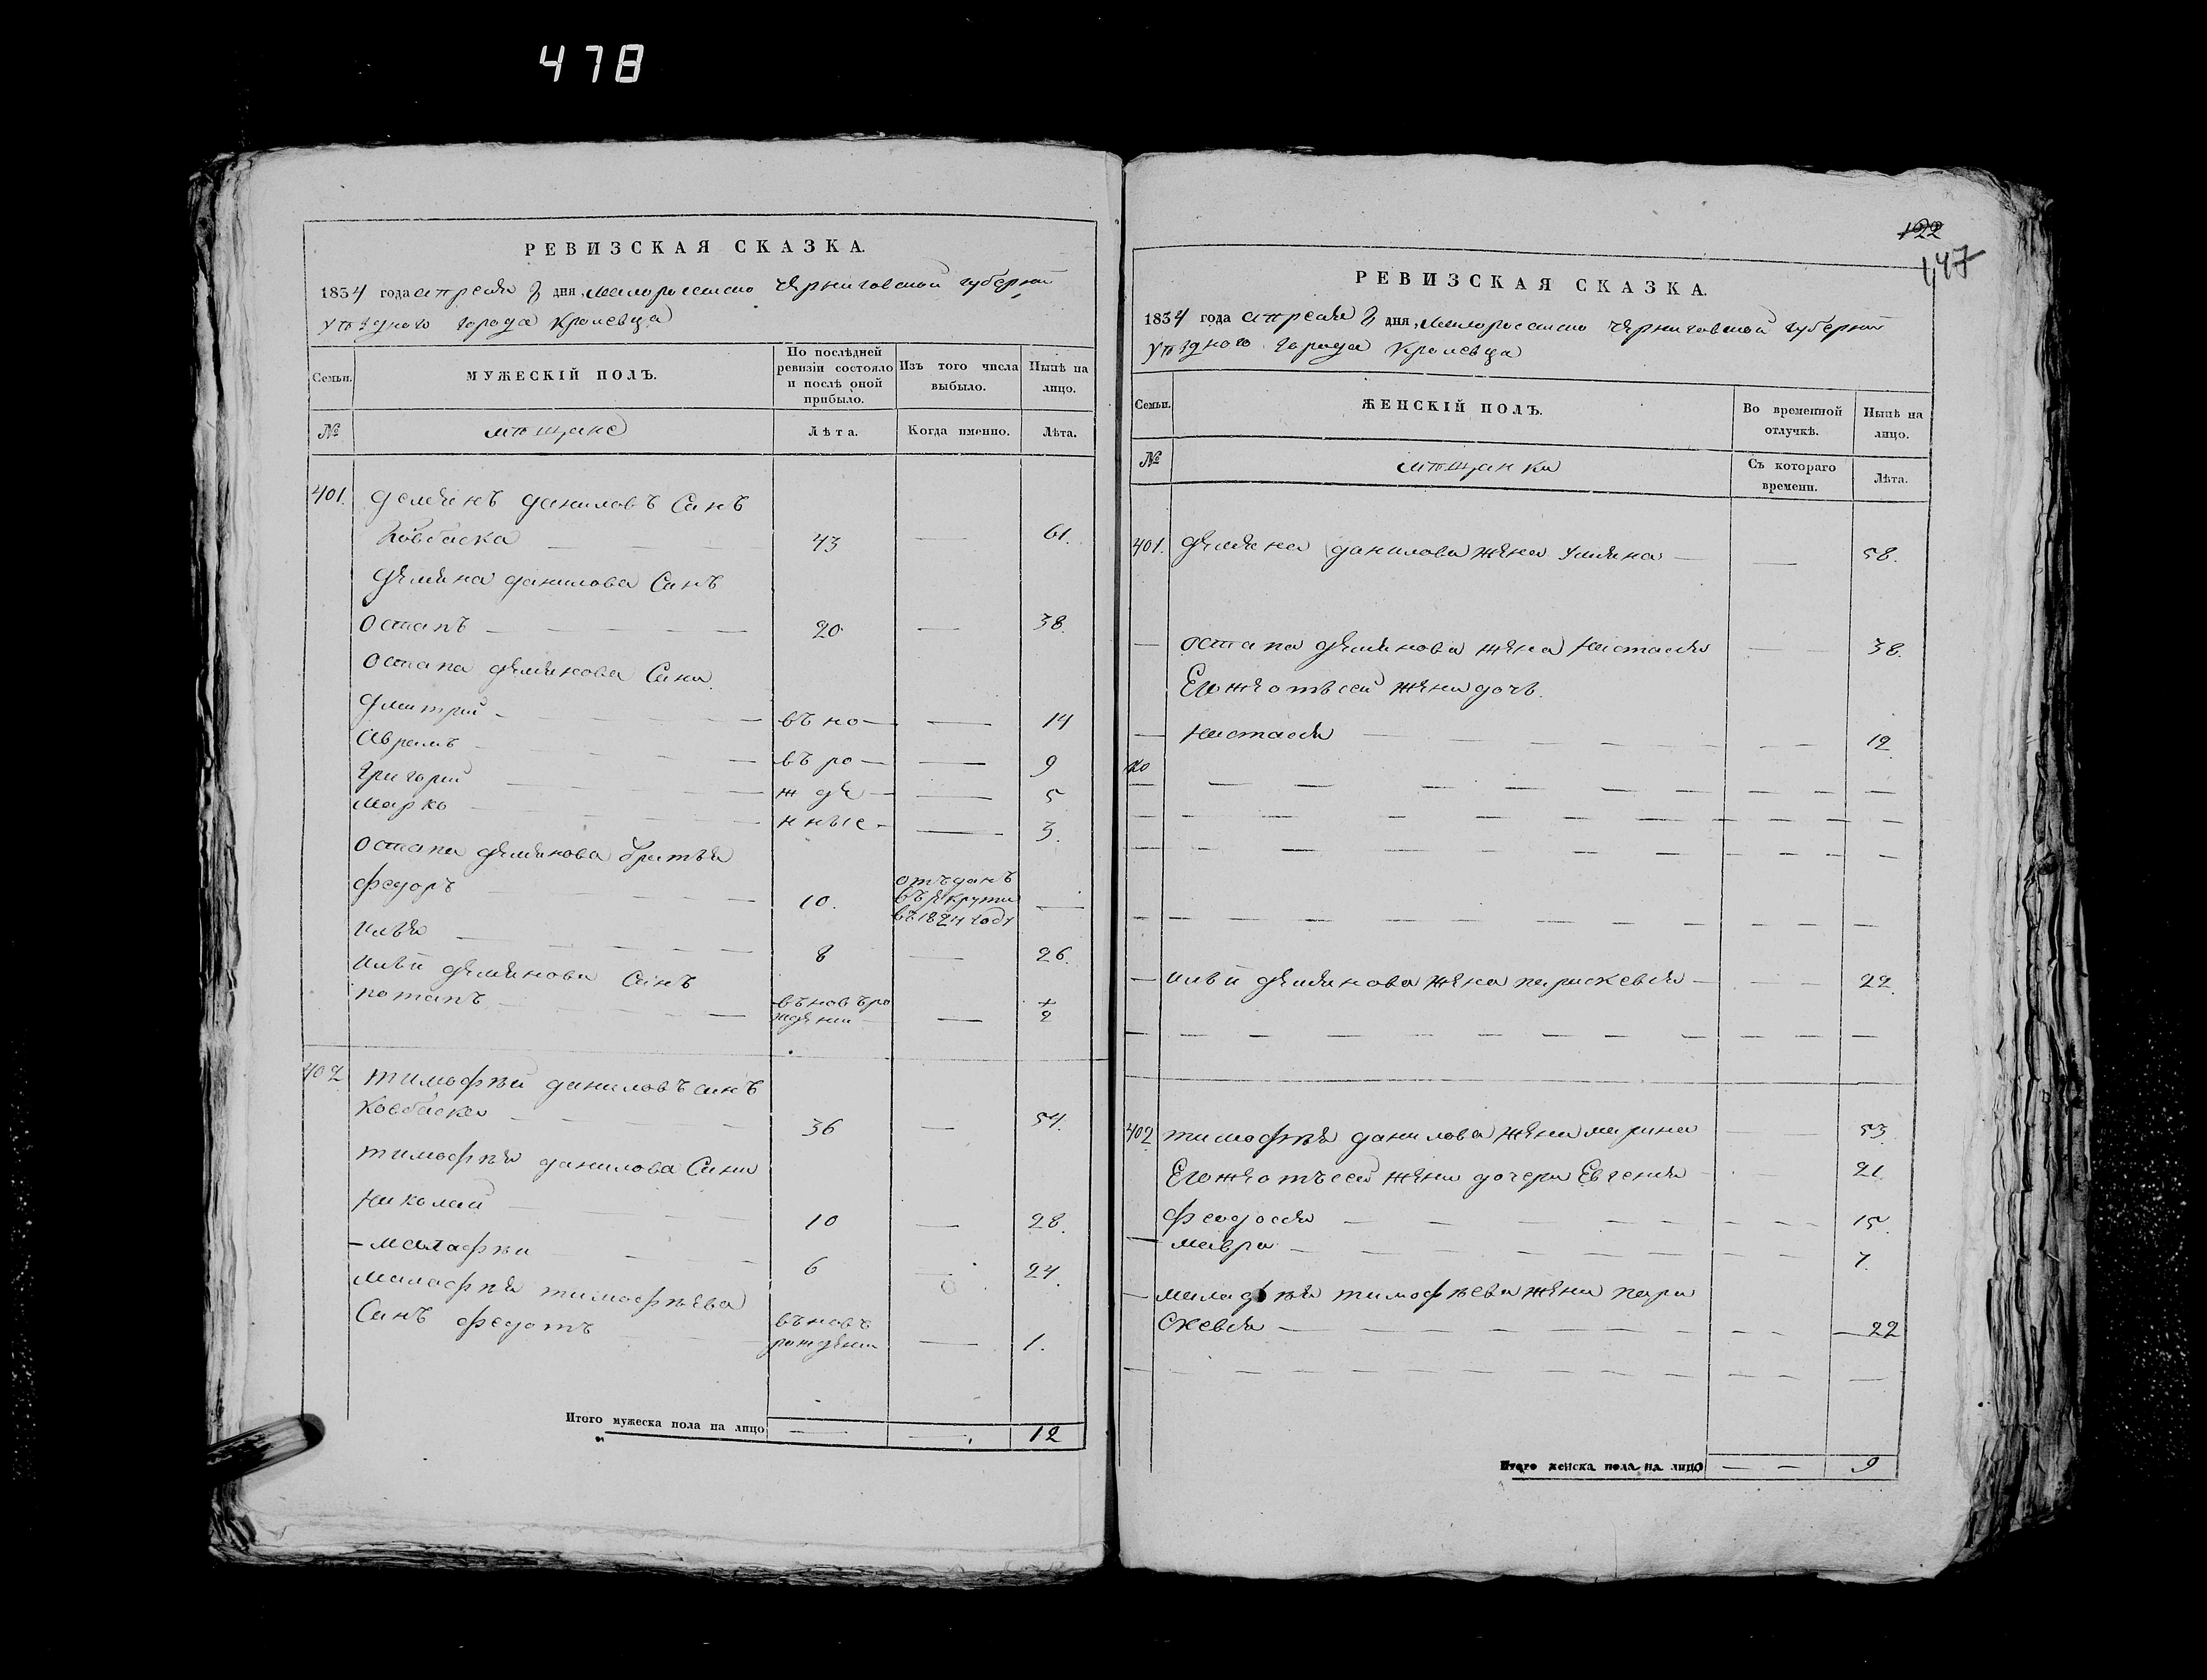 478
РЕВИЗСКАЯ СКАЗКА.
1834 года апреля дня, Малороссийско Черниговской губернии
уѣзднаго города Кролевца
Семьи.
МУЖЕСКІЙ ПОЛЪ.
По послѣдней ревизіи состояло и послѣ оной прибыло.
Изъ того числа выбыло.
Нынѣ на лицо.
№
мѣщане
Лѣта.
Когда именно.
Лѣта.
401. Демянъ Даниловъ Синъ
Ковбаска — 43 — 61.
Демяна Данилова Синъ
Остапъ — 20 — 38.
Остапа Демянова Сини
Дмитрий — въ но — — 14
Аврамъ — въ ро — — 9
Григорий — жде — — 5
Марко — нные — — 3.
Остапа Демянова братья
Федоръ — 10. отъданъ въ рекруты въ 1824 году —
Илья — 8 — 26.
Ильи Демянова Синъ
Потапъ — въновъро ждении — — 2
402 Тимофѣй Даниловъ синъ
Ковбаска — 36 — 54.
Тимофѣя Данилова Сини
Николай — 10 — 28.
— Малафѣй — 6 — 24.
Малафѣя Тимофѣева
Синъ Федотъ — въновъ рождении — 1.
Итого мужеска пола на лицо — — 12
122
147
РЕВИЗСКАЯ СКАЗКА.
1834 года апреля дня, Малороссийско Черниговской губернии
уѣзднаго города Кролевца
Семьи.
ЖЕНСКІЙ ПОЛЪ.
Во временной отлучкѣ.
Нынѣ на лицо.
№
мѣщанки
Съ котораго времени.
Лѣта.
401. Демяна Данилова жена Уляна — — 58.
— Остапа Демянова жена Настасья — — 38.
Егоже отъ сей жени дочь.
— Настасья — — 12
— Ильи Демянова жена Парискевья — — 22.
402 Тимофѣя Данилова жена Марина — — 53.
Егоже отъ сей жени дочери Евгения — 21.
Феодосья — — 15.
— Мавра — — 7.
— Малафѣя Тимофѣева жена Пари
скевья — — 22
Итого женска пола на лицо — — 9